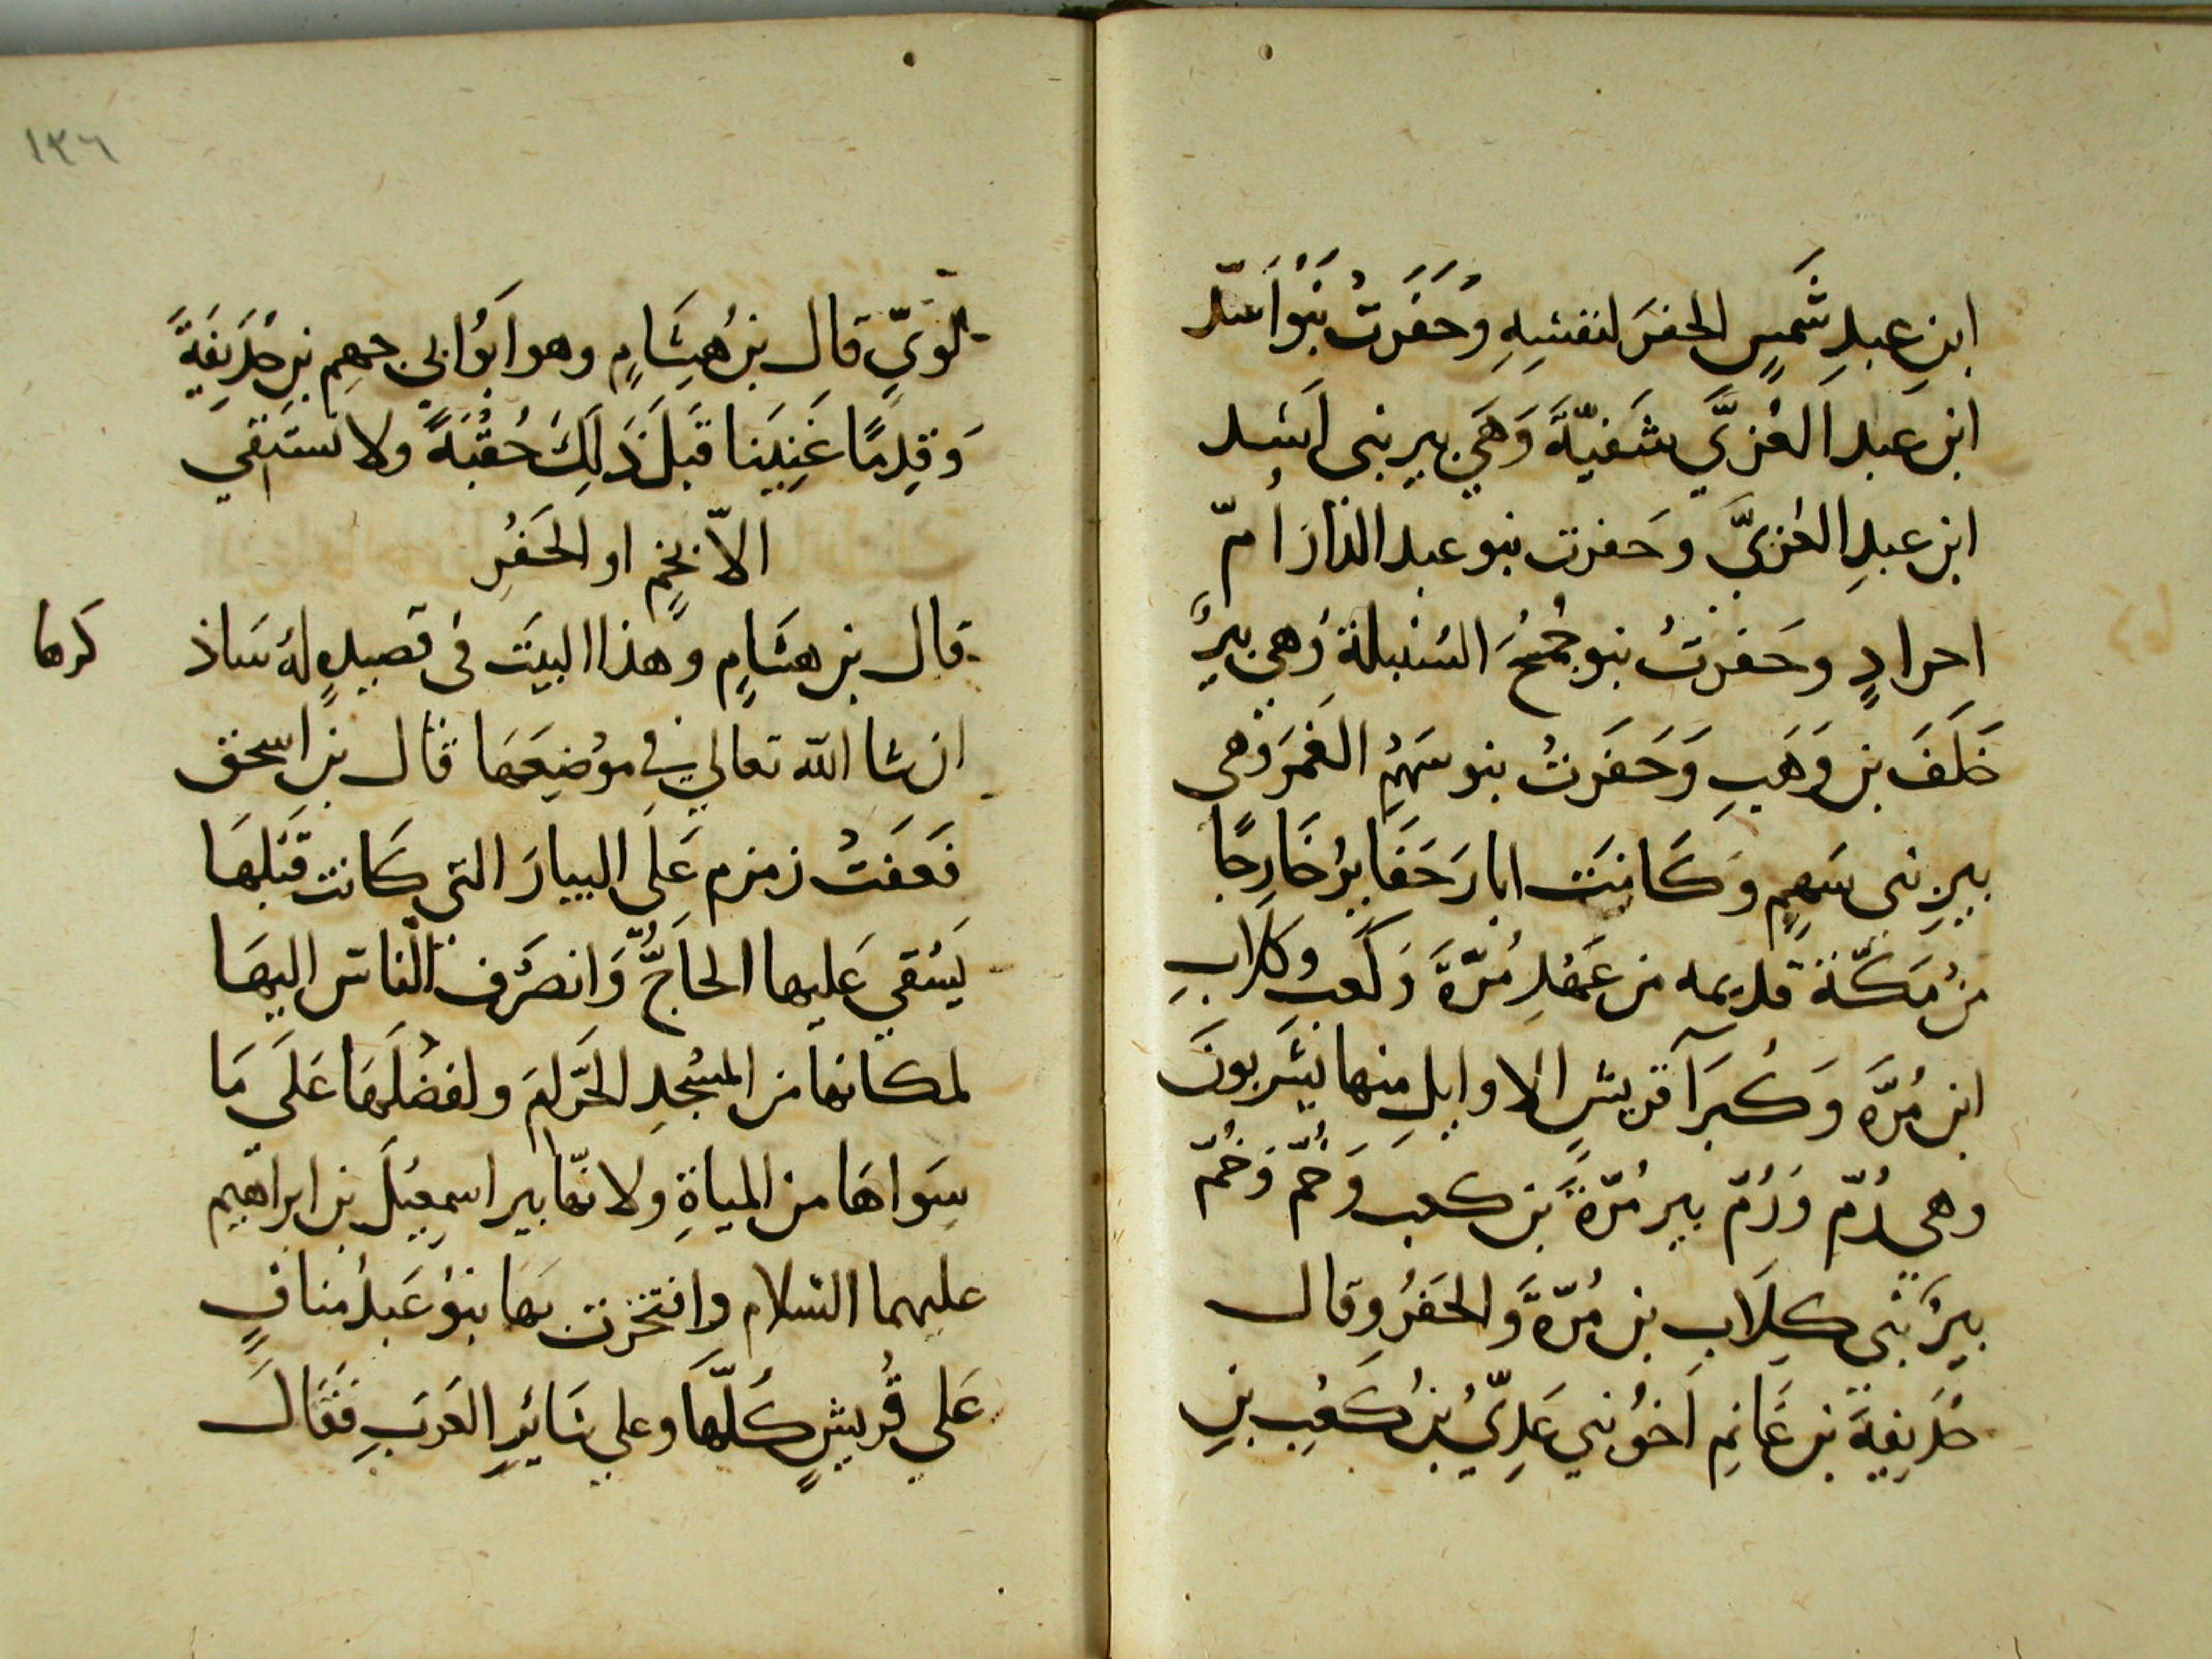 ابنِ عبدِ شَمسٍ الحفرَ لنفسِهِ وَحَفَرَتْ بَنُوْ اَسَد
ابن عَبد العُزيَّ سَفيّةَ وَهَيَ بير بنى اَسَد
ابن عبدِ العُزىَّ وحَفرت بنو عبد الدّار اُمّ
احرادٍ وحَفرتْ بنو جُمَحُ السُنبلةِ وَهي بيرُ
خَلَفَ بن وَهَبِ وَحَفَرتْ بنو سَهْمِ الغَمَر وَهى
بيرِ بنى سَهمٍ وَكَانَت ابارَ حَفَايرُ خَارِجًا
من مَكّة قديمه من عَهْدِ مُرّةَ وَكعبِ وكلابِ
ابن مُرّةَ وَكُبَرَآ قريشٍ الاوايلِ منها يَشَربونَ
وهي رُمّ وَرُمّ بير مُرّةَ بن كعب وَخُمّ وَخُمّ
بيرُ بَني كِلَابِ بن مُرّةَ وَالحَفرُ وقال
حُذَيفةَ بن غَانِمِ اَخوُ بني عَدِيِّ بن كَعْبِ بنِ
١٣٦
لُوَيِّ قال بن هِشَامٍ وهو ابوُ ابي جهمِ بنِ حُذَيفَةَ
وَقِدِمًا غَنِيَنا قَبَلَ ذَلِكَ حُقْبَةً ولا نَستَقي
الاّ بخُمٍ او الحَفْرِ
قال بن هشَامٍ وهذا البيَت فى قصيدٍه لهُ سَاذ
كرها
ان شا الله تعالي في موُضِعَهَا قَال بن اسحق
فَعَفَتْ زمزم عَلَى البيارَ التي كَانت قَبَلهَا
يَسْقي عَليها الحاَجُّ وَانصَرَف النّاسُ اليهَا
لمكانها من المسْجدِ الحَرَامِ ولفضْلَهَا عَلَى مَا
سِوَاهَا من المياةِ ولانّها بير اسمعيْلَ بن ابراهيم
عليهما السّلام وافتخرت بهَا بنوُ عَبدُ منافٍ
عَلي قُريشٍ كُلّهَا وعلي سَائرِ العَربِ فَقَالَ